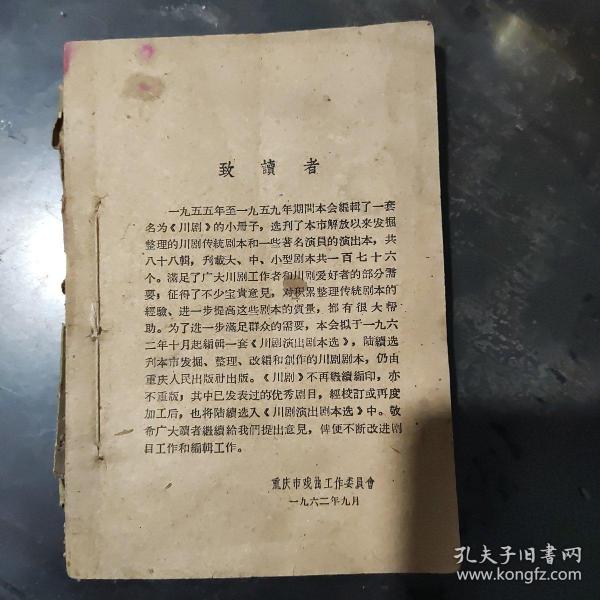 致讀者
一九五五年至一九五九年期間本会編輯了一套
名为《川剧》的小册子，选刊了本市解放以来发掘
整理的川剧传統剧本和一些著名演員的演出本，共
八十八輯，刋載大、中、小型剧本共一百七十六
个。滿足了广大川剧工作者和川剧爱好者的部分需
要；征得了不少宝貴意見，对积累整理传統剧本的
經驗、进一步提高这些剧本的质量，都有很大帮
助。为了进一步滿足群众的需要，本会拟于一九六
二年十月起編輯一套《川剧演出剧本选》，陆續选
刋本市发掘、整理、改編和創作的川剧剧本，仍由
重庆人民出版社出版。《川剧》不再繼續編印，亦
不重版；其中已发表过的优秀剧目，經校訂或再度
加工后，也将陆續选入《川剧演出剧本选》中。敬
希广大讀者繼續給我們提出意見，俾便不断改进剧
目工作和編輯工作。
重庆市戏曲工作委員會
一九六二年九月
孔夫子旧書网
www.kongfz.com